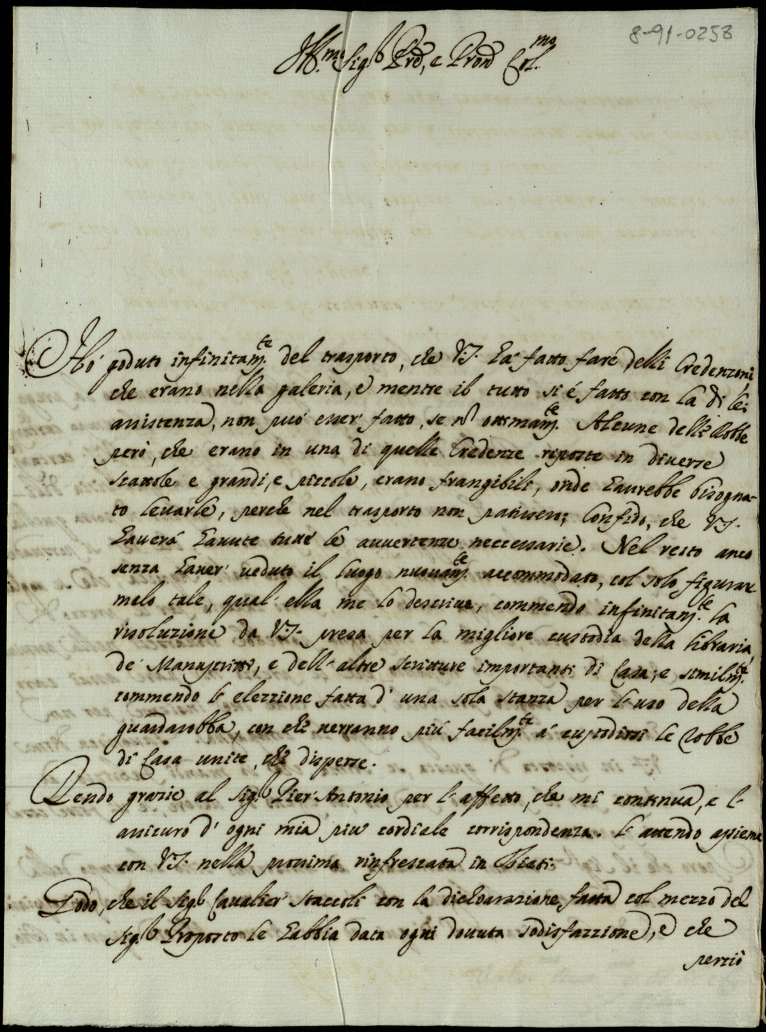 8-91-0253
Ill.mo Sig.r Prõ, e Prõn Col.mo
Hò goduto infinitam.te del trasporto, che VS. hà fatto fare delli Credenzoni
che erano nella galeria, e mentre il tutto si è fatto con la di lei
assistenza, non può esser fatto, se nõ ottimam.te. Alcune delle Robbe
però, che erano in una di quelle Credenze riposte in diverse
scattole e grandi, e piccole, erano frangibili, onde havrebbe bisogna-
to levarle, perche nel trasporto non patissero; Confido, che VS.
haverà havute tutte le avvertenze necessarie. Nel resto anco
senza haver veduto il luogo nuovam.te accommodato, col solo figurar
melo tale, qual' ella me lo descrive, commendo infinitam.te la
risoluzione da VS. presa per la migliore custodia della libraria
de' Manuscritti, e dell' altre scritture importanti di Casa; e similm.te
commendo l' elezzione fatta d' una sola stanza per l' uso della
guardarobba, con che verranno più facilm.te à custodirsi le robbe
di Casa unite, che disperse.
Rendo grazie al Sig.r Pier' Antonio per l' affetto, che mi continua, e l'
assicuro d' ogni mia più cordiale corrispondenza. L' attendo assieme
con VS. nella prossima rinfrescata in Chieti.
Godo, che il Sig.r Cavalier Staccoli con la dichiarazione, fatta col mezzo del
Sig.r Proposto le habbia data ogni dovuta sodisfazzione, e che
perciò